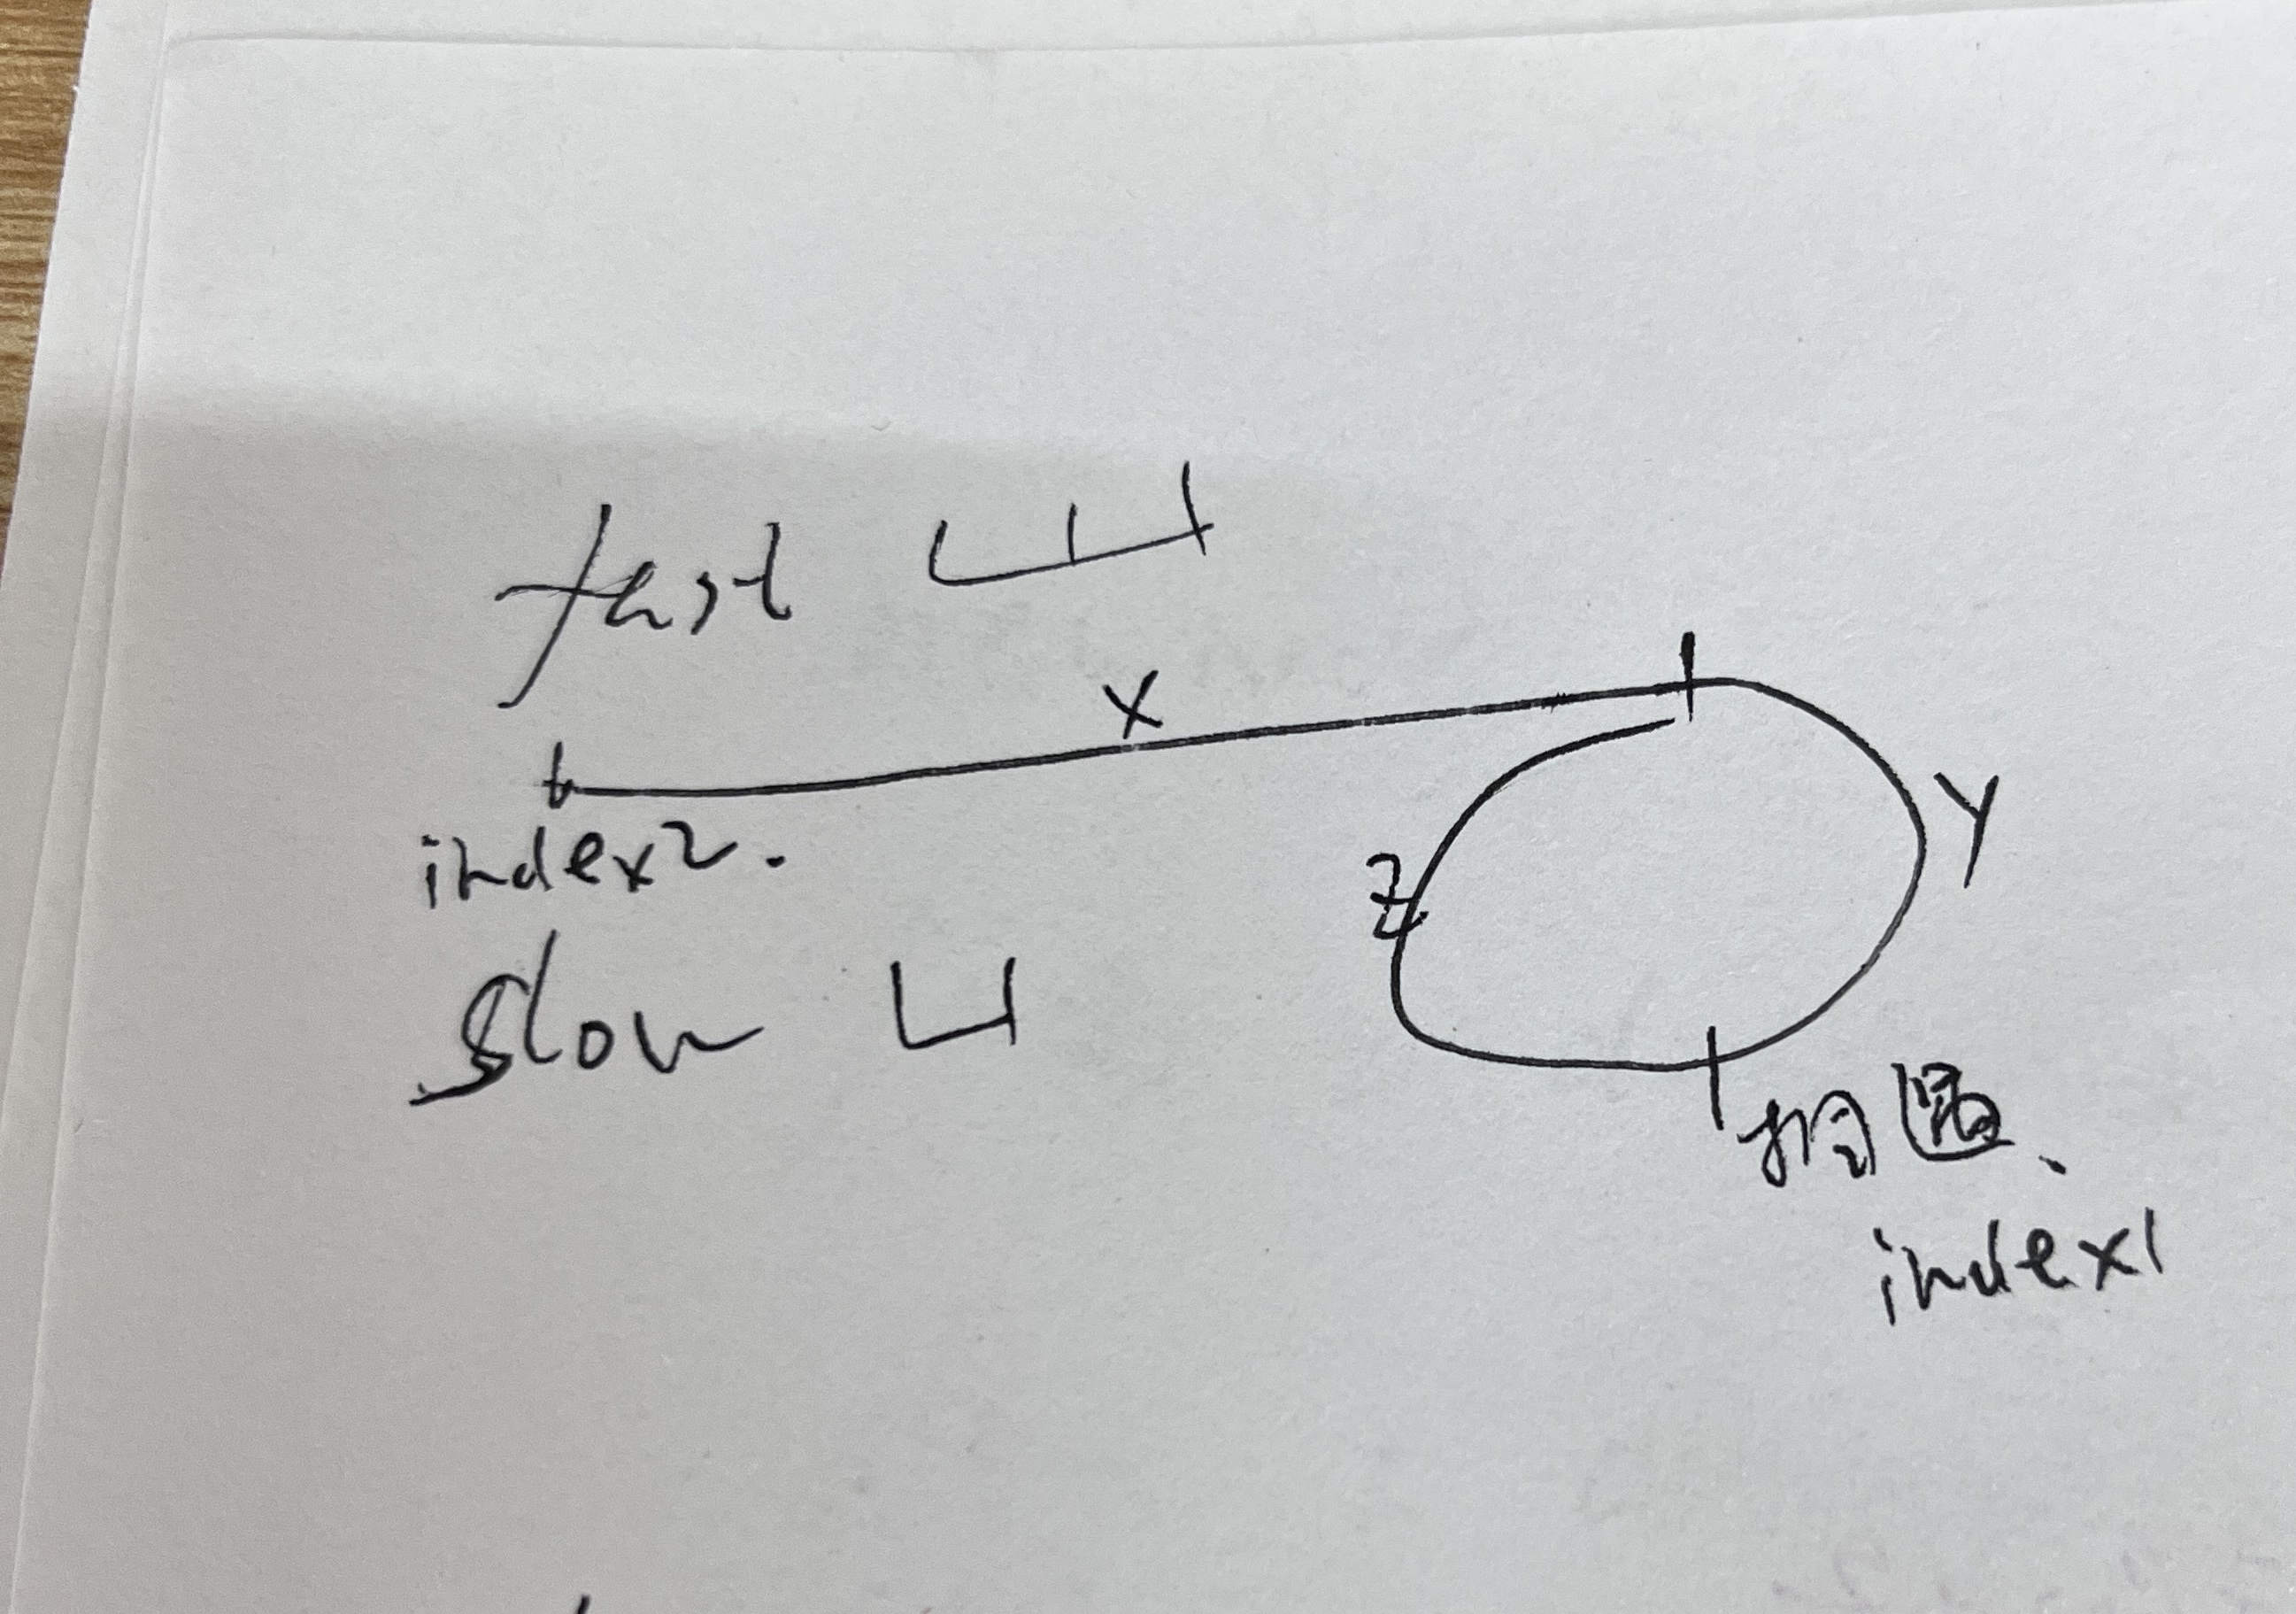 fast
X
Y
index2.
Z
slow
相遇、
index1